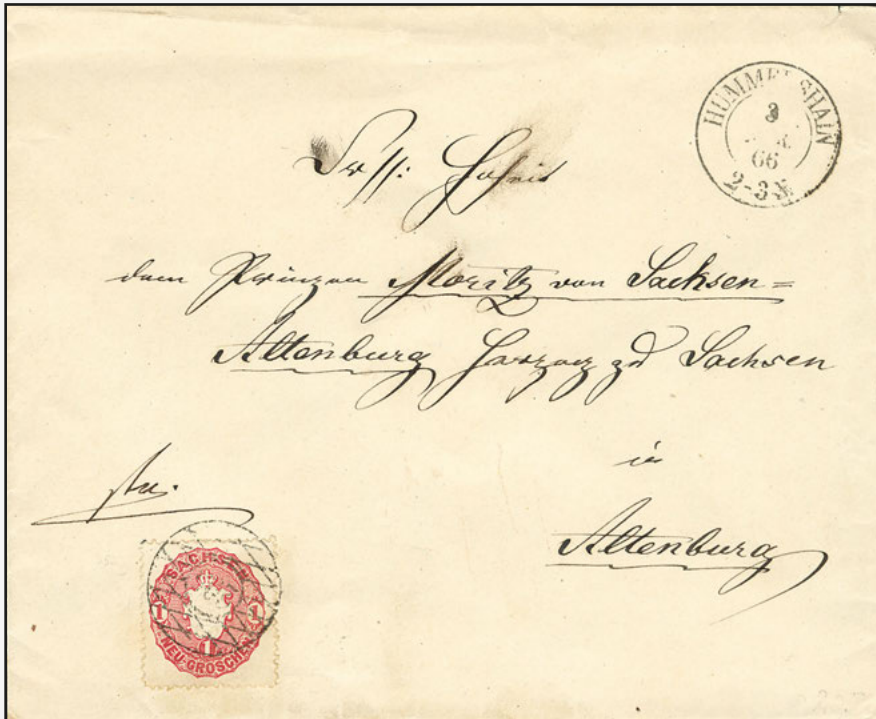 HUMMELSHAIN
3
66
2-3
Hoheit
dem Prinzen Moritz von Sachsen=
Altenburg Herzog zu Sachsen
in
Altenburg
SACHSEN
1 1
1
NEU-GROSCHEN